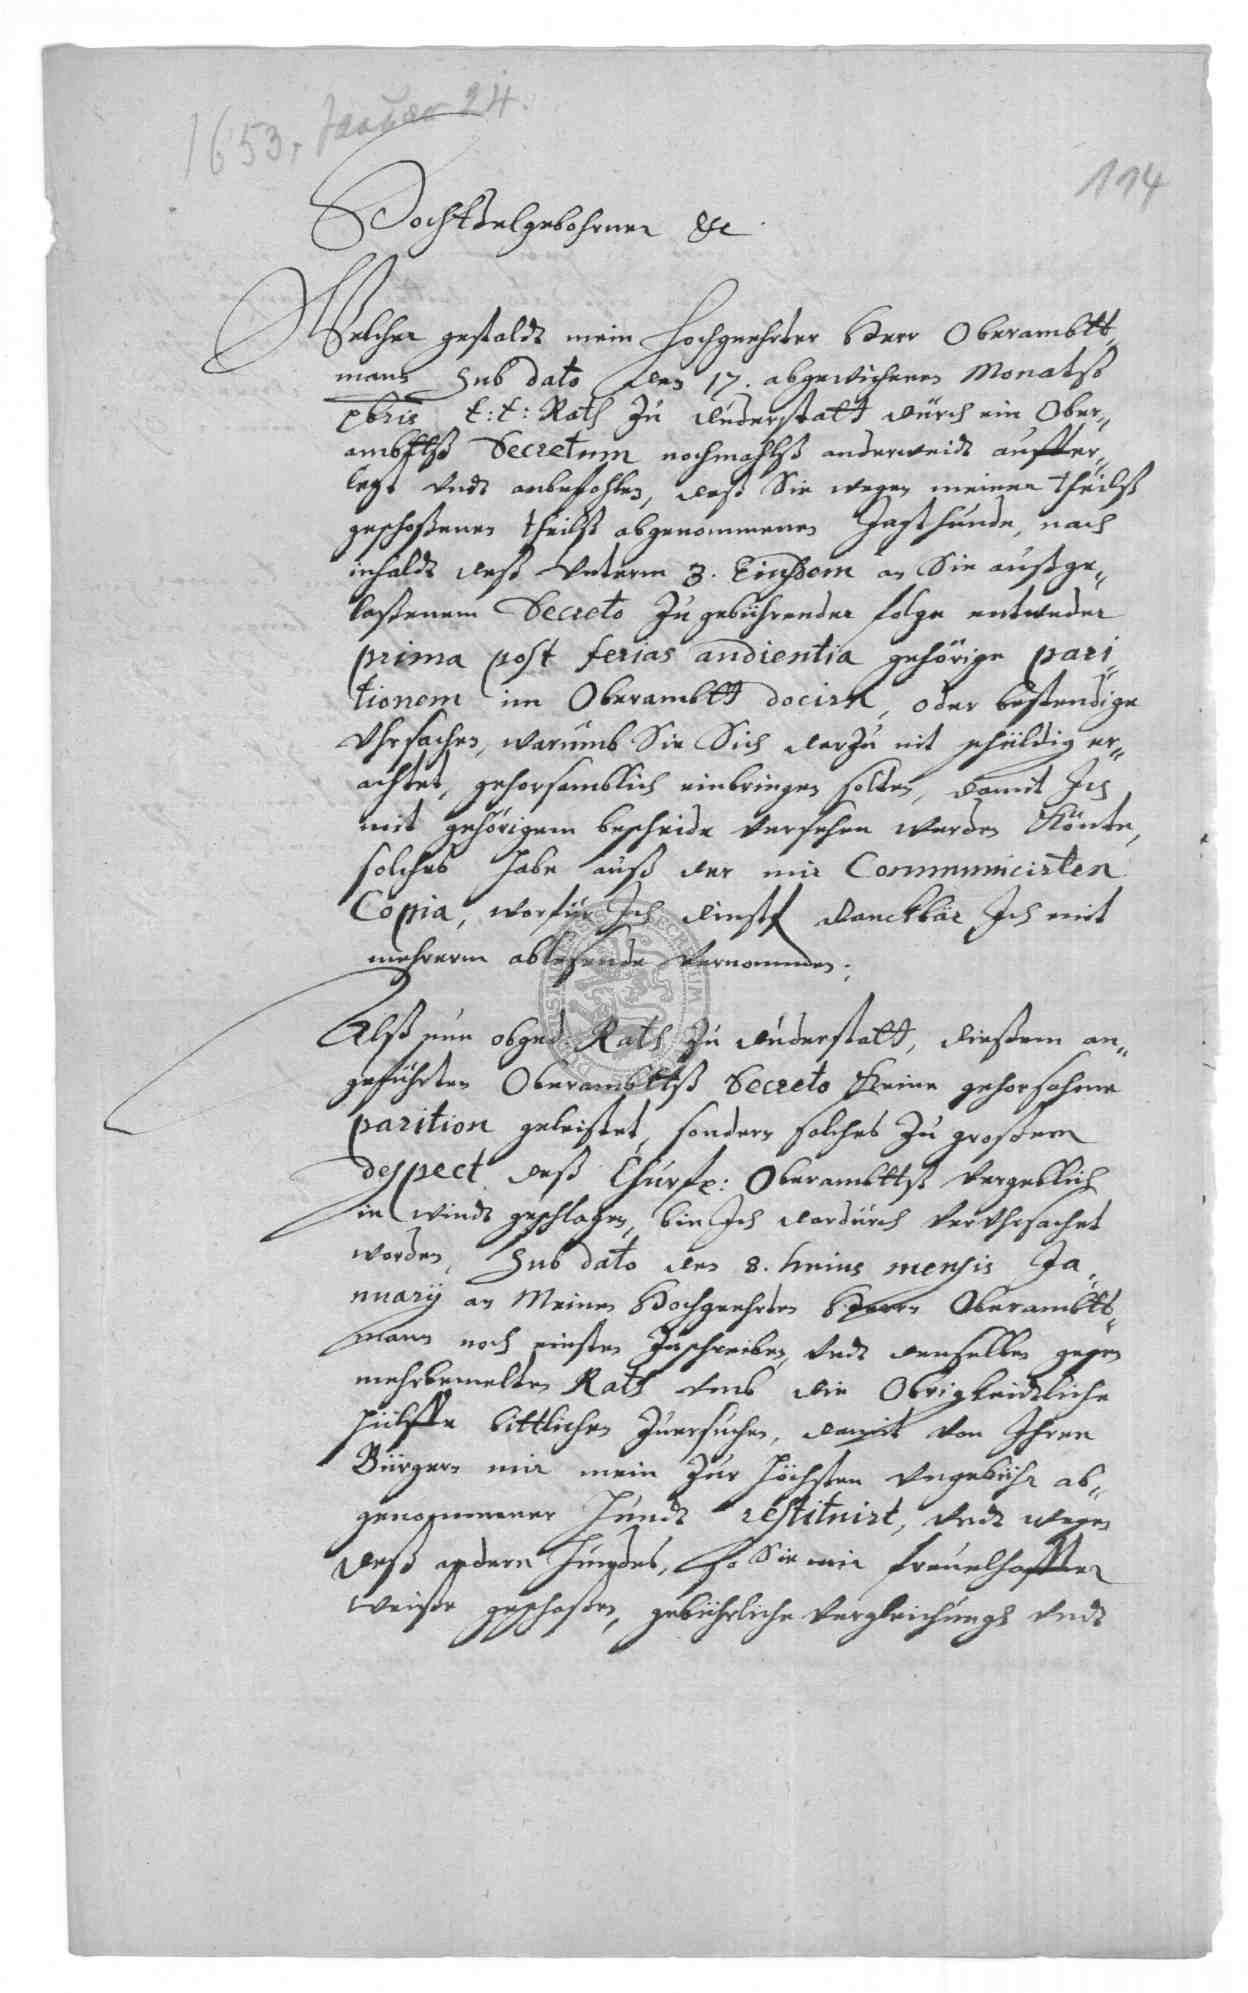 1653, Januar 24.
114
HochEdelgebohrner &c
Welcher gestaldt mein Hochgeehrter Herr Oberambtt„
mann sub dato den 17. abgewichenen Monatß
xbris t: t: Rath zu Duderstatt durch ein Ober„
ambttß Decretum nochmahlß anderweidt aufferr„
legt undt anbefohlen, daß Sie wegen meiner theilß
geschoßenen theilß abgenommenen Jagthunde, nach
inhaldt deß unterm 3. Eiusdem an Sie außge„
laßenem Decreto zu gebührender folge entweder
prima post ferias audientia gehörige pari„
tionem im Oberambtt dociren, oder bestendige
Uhrsachen, warumb Sie Sich darzu nit schüldig er„
achtet, gehorsamblich einbringen solten, damit Ich
mit gehörigem bescheide versehen werden könte,
solches habe auß der mir Communicirten
Copia, worfür Ich dinstl danckbar Ich mit
mehrerm ablesende vernommen;
Alß nun obged Rath zu Duderstatt, dießem an„
geführten Oberambttß Decreto keine gehorsahme
parition geleistet, sondern solches zu großem
despect deß Churfr: Oberambttß vergeblich
in windt geschlagen, bin Ich dardurch veruhrsachet
worden, sub dato den 8. huius mensis Ja„
nuarÿ an Meinen Hochgeehrten Herrn Oberambtt„
mann noch einsten zuschreiben, undt denselben gegen
mehrbemelten Rath umb die Obrigkeidtliche
hülffe bittlichen zuersuchen, damit von Ihren
Bürgern mir mein zur höchsten ungebühr ab„
genommener hundt restituirt, undt wegen
deß andern hundes, so Sie mir frevelhaffter
weiße geschoßen, gebührliche vergleichungh undt